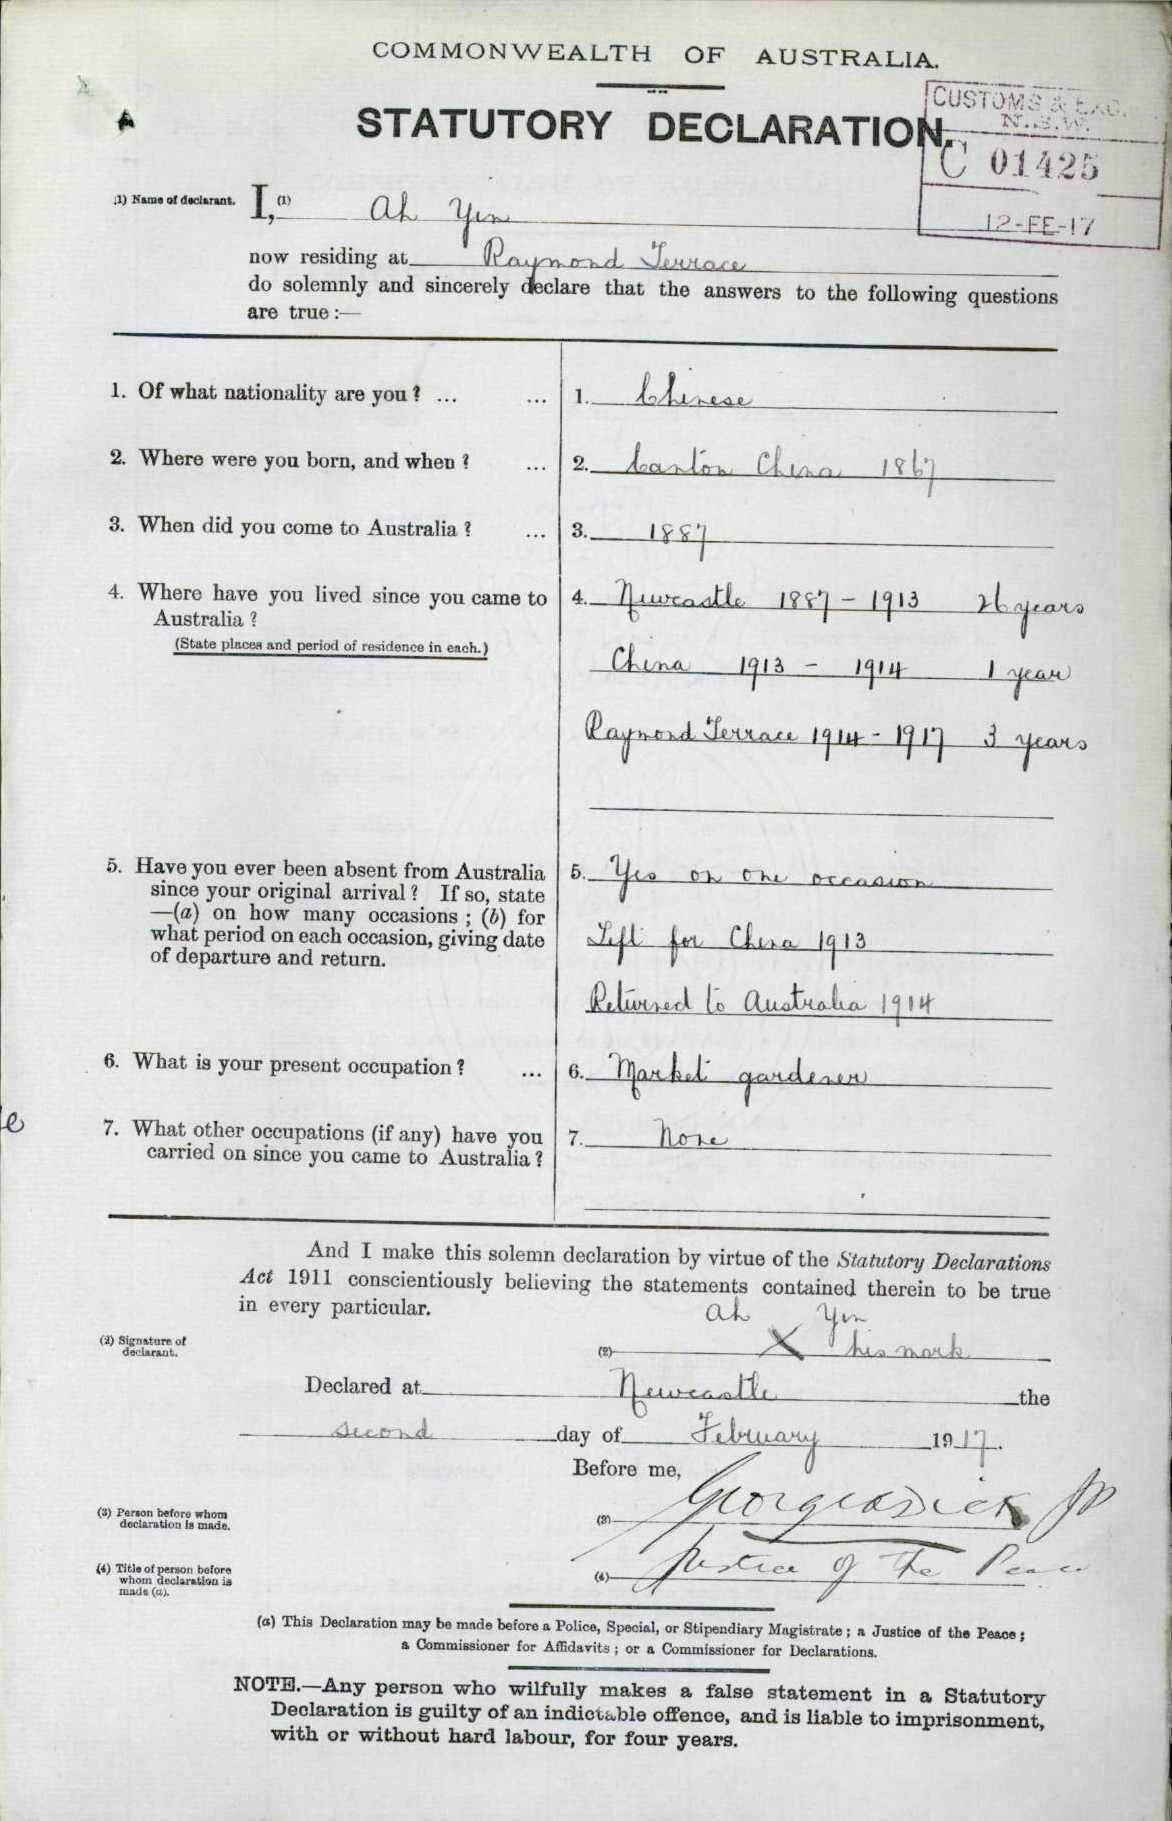 COMMONWEALTH OF AUSTRALIA.
STATUTORY DECLARATION.
CUSTOMS & EXC.
N.S.W.
C 01425
12-FE-17
A
(1) Name of declarant. I, (1) Ah Yin
now residing at Raymond Terrace
do solemnly and sincerely declare that the answers to the following questions
are true :—
1. Of what nationality are you ? ... ... 1. Chinese
2. Where were you born, and when ? ... 2. Canton China 1867
3. When did you come to Australia ? ... 3. 1887
4. Where have you lived since you came to 4. Newcastle 1887 - 1913 26 years
Australia ?
(State places and period of residence in each.)
China 1913 - 1914 1 year
Raymond Terrace 1914 - 1917 3 years
5. Have you ever been absent from Australia 5. Yes on one occasion
since your original arrival ? If so, state
—(a) on how many occasions ; (b) for
what period on each occasion, giving date Left for China 1913
of departure and return.
Returned to Australia 1914
6. What is your present occupation ? ... 6. Market gardener
7. What other occupations (if any) have you 7. None
carried on since you came to Australia ?
And I make this solemn declaration by virtue of the Statutory Declarations
Act 1911 conscientiously believing the statements contained therein to be true
in every particular.
Ah Yin
(2) Signature of
declarant.
(2) X his mark
Declared at Newcastle the
second day of February 1917.
Before me,
(3) Person before whom
declaration is made.
(3) JP
(4) Title of person before
whom declaration is
made (a).
(4) Justice of the Peace
(a) This Declaration may be made before a Police, Special, or Stipendiary Magistrate ; a Justice of the Peace ;
a Commissioner for Affidavits ; or a Commissioner for Declarations.
NOTE.—Any person who wilfully makes a false statement in a Statutory
Declaration is guilty of an indictable offence, and is liable to imprisonment,
with or without hard labour, for four years.